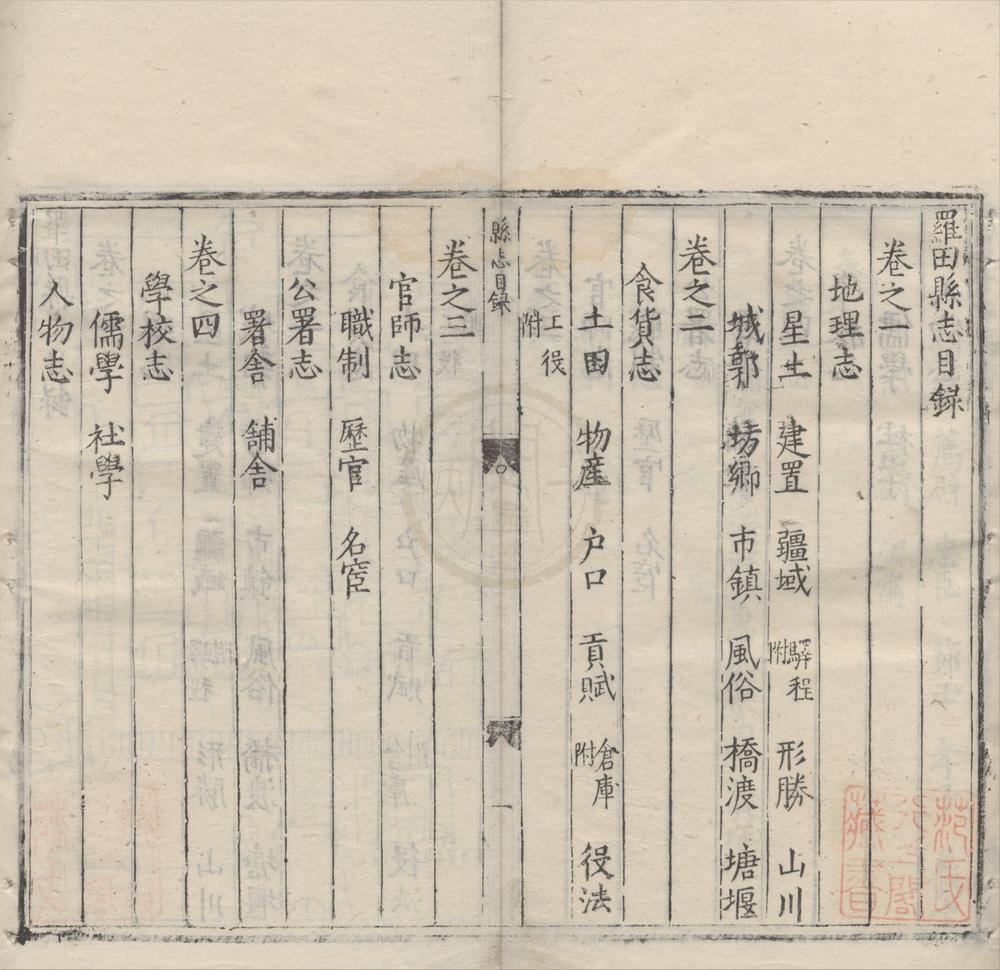 羅田縣志目録
卷之一
地理志
星土 建置 疆域 驛程附 形勝 山川
城郭 坊鄉 市鎮 風俗 橋渡 塘堰
卷之二
食貨志
土田 物産 户口 貢賦 倉庫附 役法
工役附
縣志目録 一
卷之三
官師志
職制 歷官 名宦
公署志
署舎 舗舎
卷之四
學校志
儒學 社學
人物志
范氏天一閣藏書